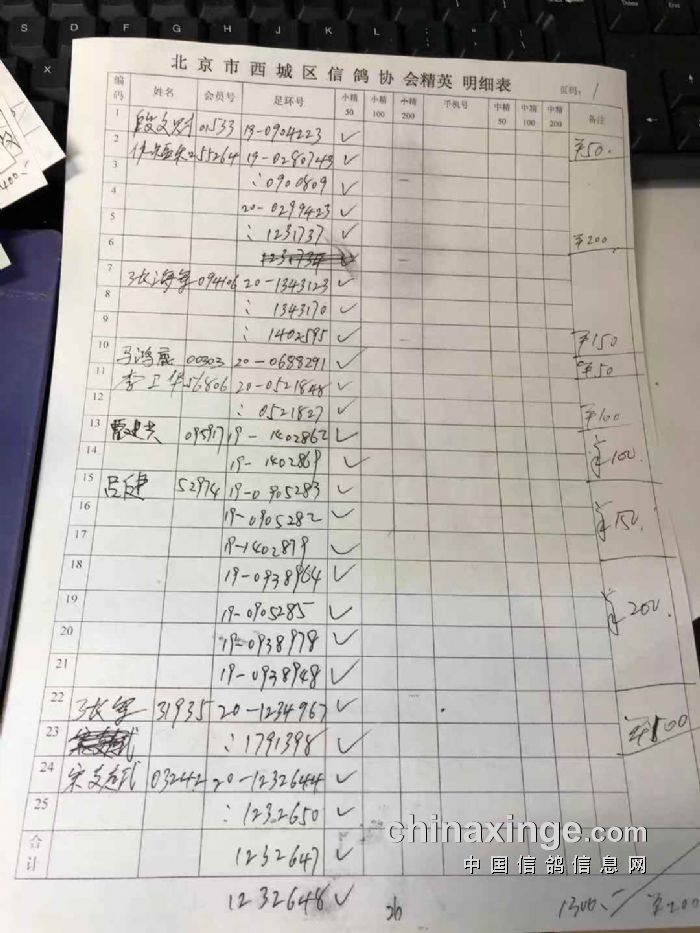 北京市西城区信鸽协会精英 明细表
页码: 1
编码 姓名 会员号 足环号 小精50 小精100 小精200 手机号 中精50 中精100 中精200 备注
1 01533 19-0904223 ✓ ¥50.
2 255264 19-0290743 ✓
3 : 0900809 ✓
4 20-0299423 ✓
5 : 1231737 ✓ ¥200
6
7 张海军 094106 20-1343123 ✓
8 : 1343170 ✓
9 : 1402595 ✓ ¥150
10 马鸿 00303 20-0688291 ✓ ¥50
11 李卫华 56806 20-0521848 ✓
12 : 0521827 ✓ ¥100
13 09517 19-1402862 ✓
14 19-1402869 ✓ ¥100.
15 吕健 52974 19-0905283 ✓
16 19-0905282 ✓ ¥150.
17 19-1402879 ✓
18 19-0938964 ✓
19 19-0905285 ✓ ¥200.
20 19-0938978 ✓
21 19-0938948 ✓
22 张军 31935 20-1234967 ✓
23 : 1791398 ✓ ¥100
24 宋 武 03242 20-1232644 ✓
25 : 1232650 ✓
合计 1232647 ✓
1232648 ✓ 26 1300.- ¥200
chinaxinge.com
中国信鸽信息网